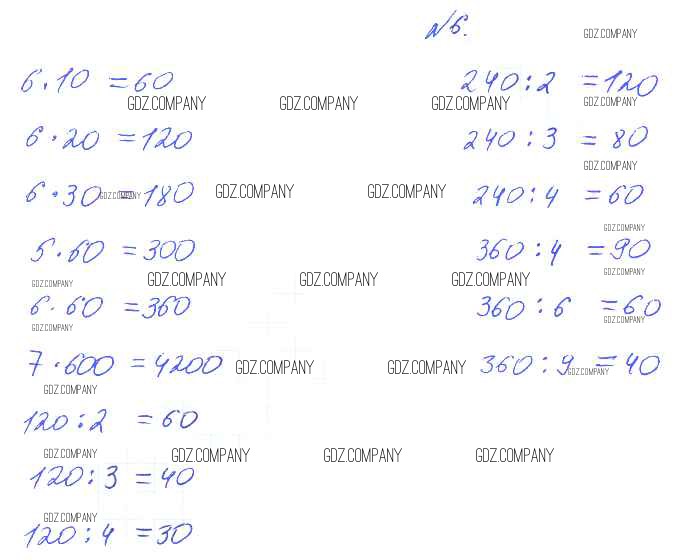 №6.
GDZ.COMPANY
6·10 =60
240:2 =120
GDZ.COMPANY GDZ.COMPANY GDZ.COMPANY GDZ.COMPANY
6·20 =120
240:3 = 80
GDZ.COMPANY
6·30 =180
240:4 =60
GDZ.COMPANY GDZ.COMPANY GDZ.COMPANY
GDZ.COMPANY
5·60 =300
360:4 =90
GDZ.COMPANY
GDZ.COMPANY GDZ.COMPANY GDZ.COMPANY GDZ.COMPANY
6·60 =360
360:6 =60
GDZ.COMPANY
GDZ.COMPANY
7·600 =4200
360:9 =40
GDZ.COMPANY GDZ.COMPANY GDZ.COMPANY
GDZ.COMPANY
120:2 =60
GDZ.COMPANY GDZ.COMPANY GDZ.COMPANY GDZ.COMPANY
120:3 =40
GDZ.COMPANY
120:4 =30